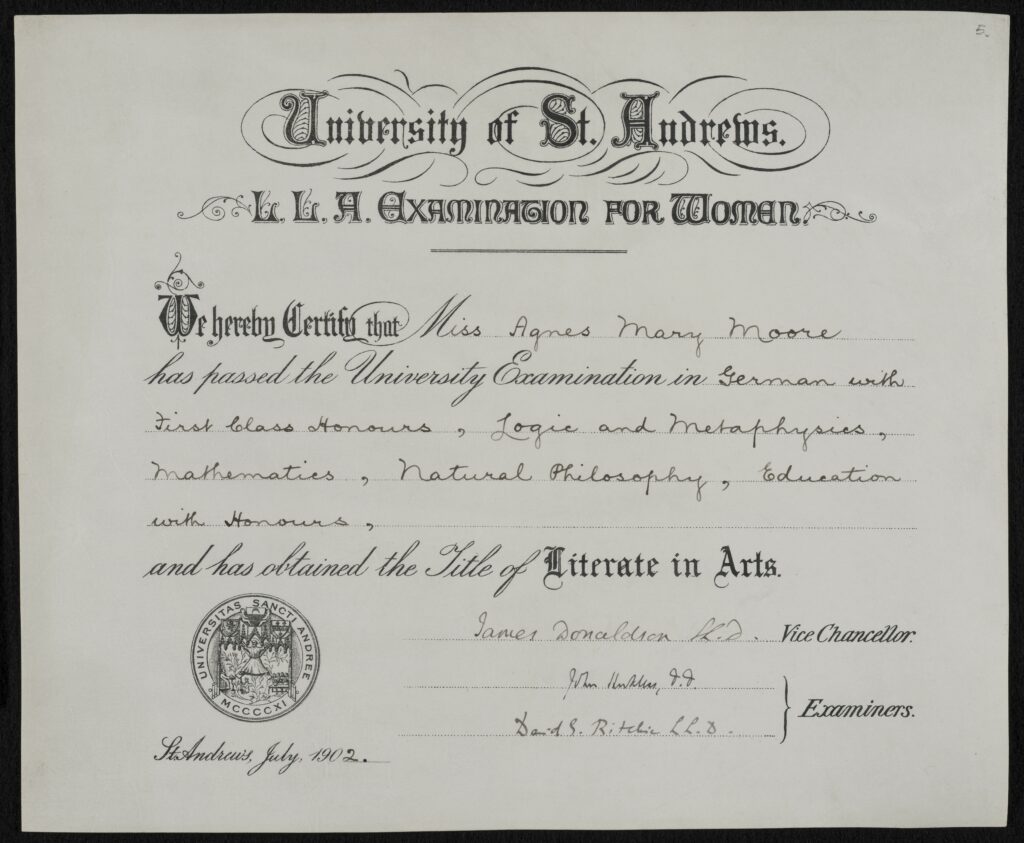 5.
University of St. Andrews.
L. L. A. Examination for Women.
We hereby Certify that Miss Agnes Mary Moore
has passed the University Examination in German with
First Class Honours, Logic and Metaphysics,
Mathematics, Natural Philosophy, Education
with Honours,
and has obtained the Title of Literate in Arts.
UNIVERSITAS SANCTI ANDREE
MCCCCXI
James Donaldson LL.D. Vice Chancellor.
John D.D
David G. Ritchie LL.D.
Examiners.
St. Andrews, July, 1902.